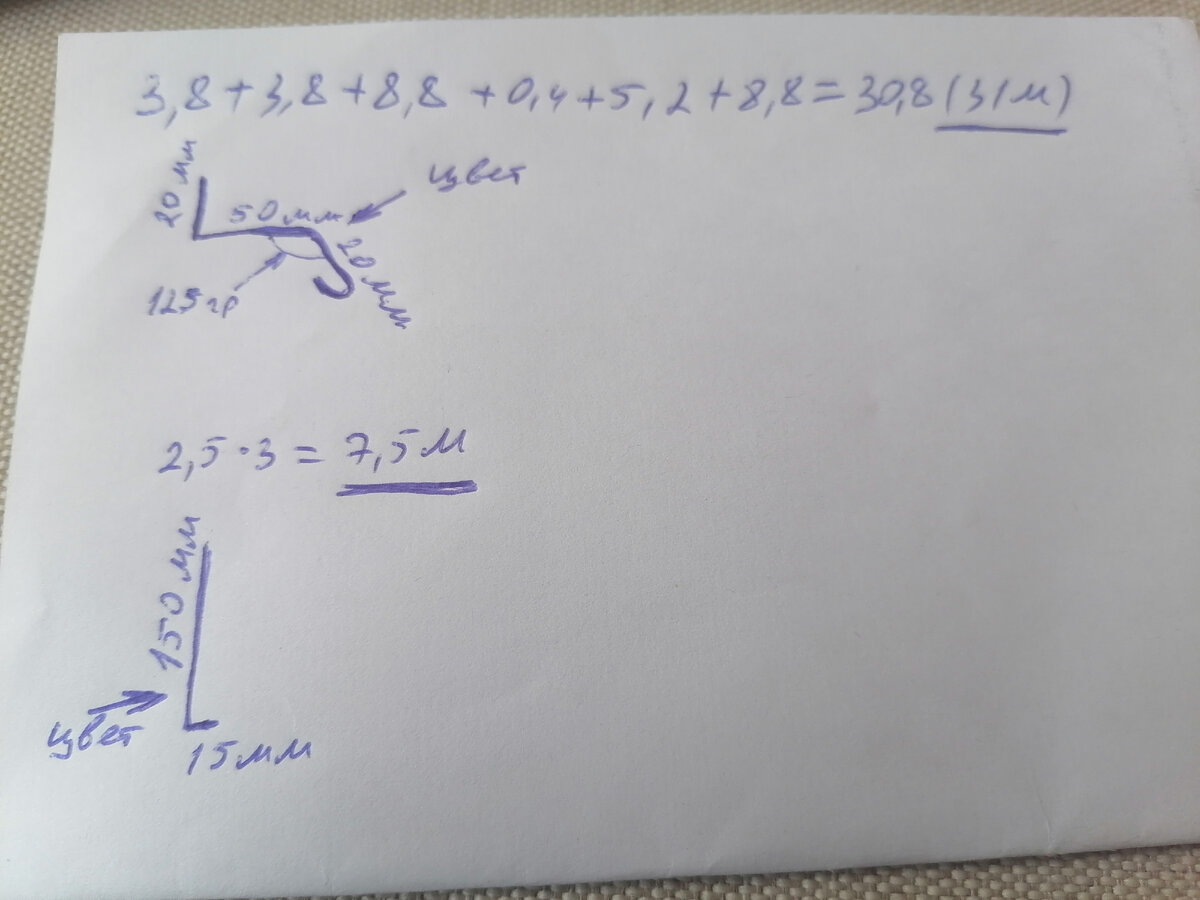 3,8+3,8+8,8+0,4+5,2+8,8=30,8(31м)
цвет
20 мм
50 мм
20 мм
125 гр
2,5·3=7,5м
150 мм
цвет
15мм